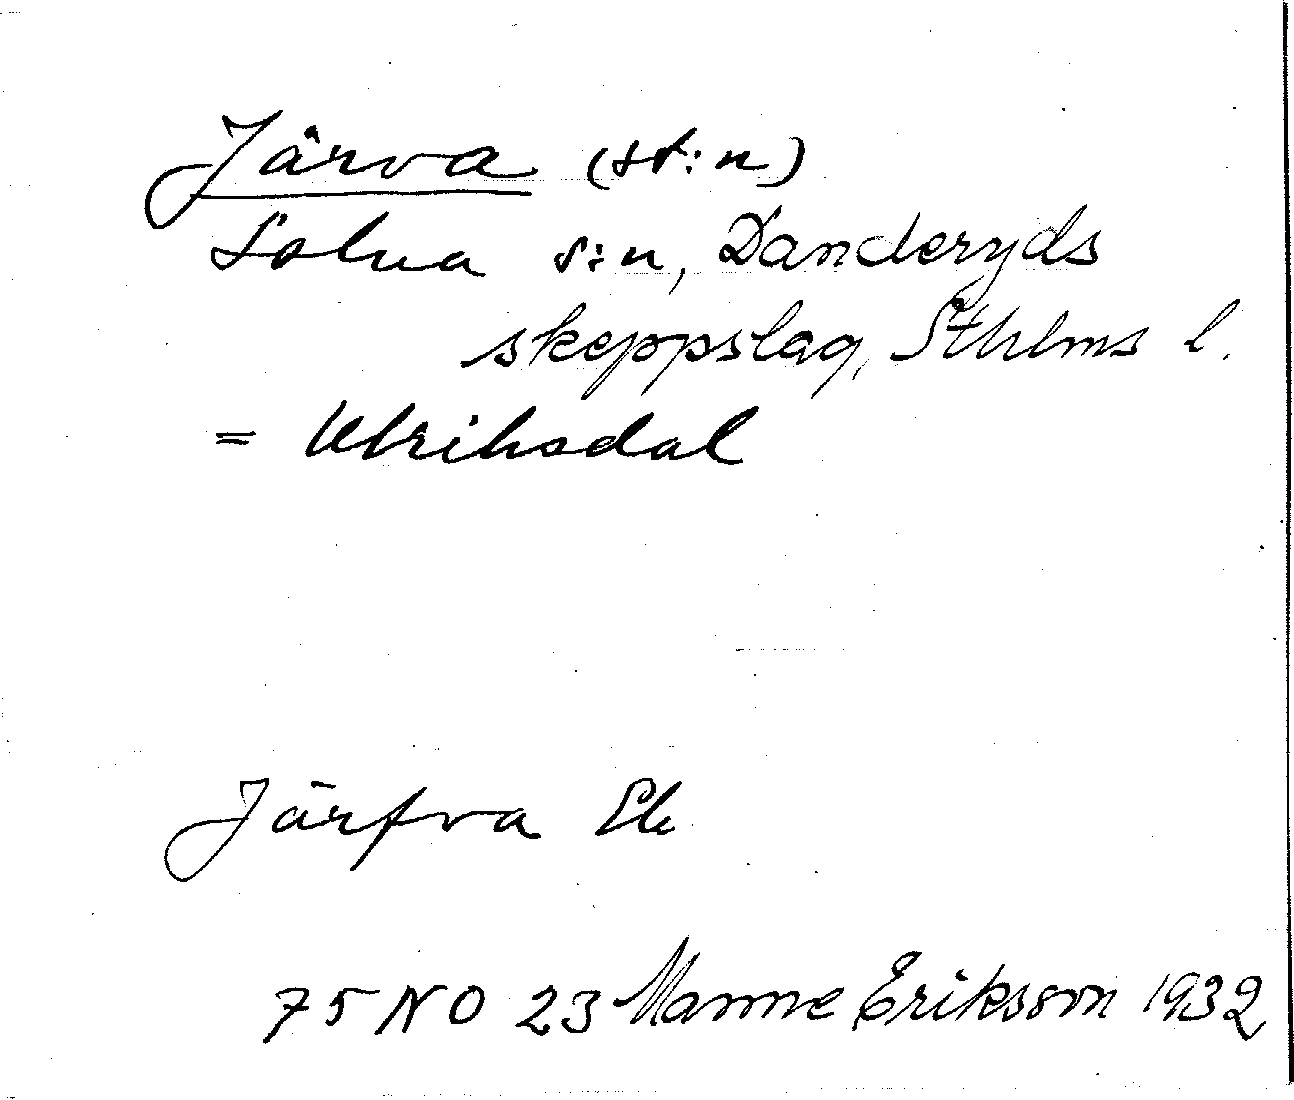 Järva (st:n)
Solna s:n, Danderyds
skeppslag, Sthlms l.
= Ulriksdal
Järfva Ek
75 NO 23 Manne Eriksson 1932